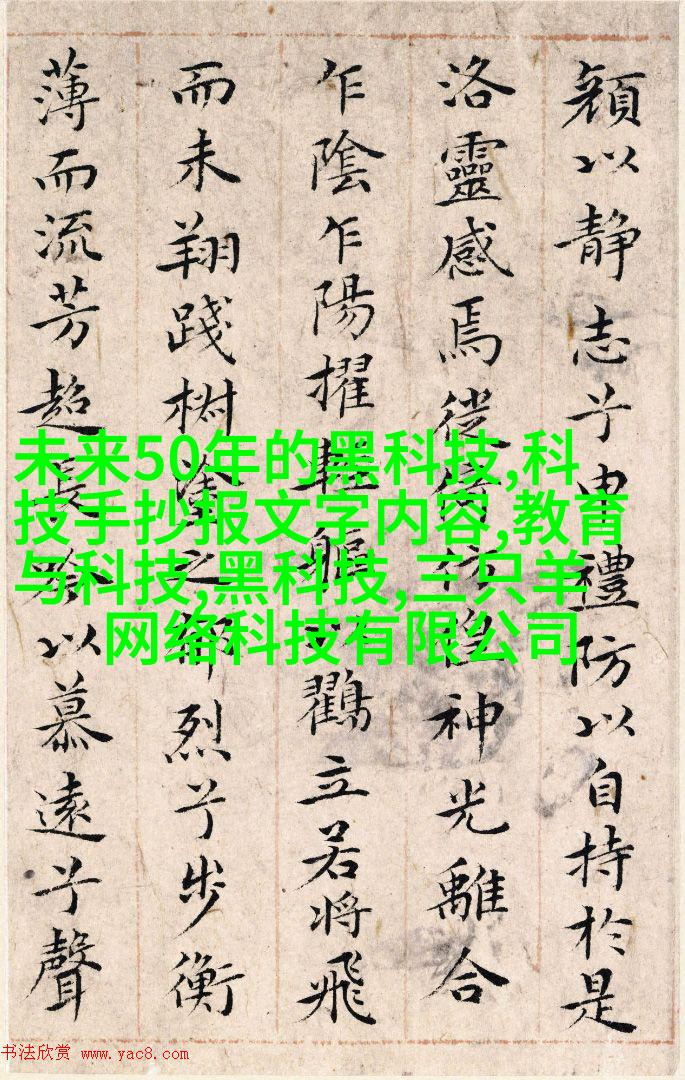 顔以静志兮申禮防以自持於是
洛靈感焉徙倚彷徨神光離合
乍陰乍陽擢輕軀以鶴立若將飛
而未翔踐椒塗之郁烈兮步衡
薄而流芳超長吟以慕遠兮聲
未来50年的黑科技,科
技手抄报文字内容,教育
与科技,黑科技,三只羊
网络科技有限公司
书法欣赏 www.yac8.com